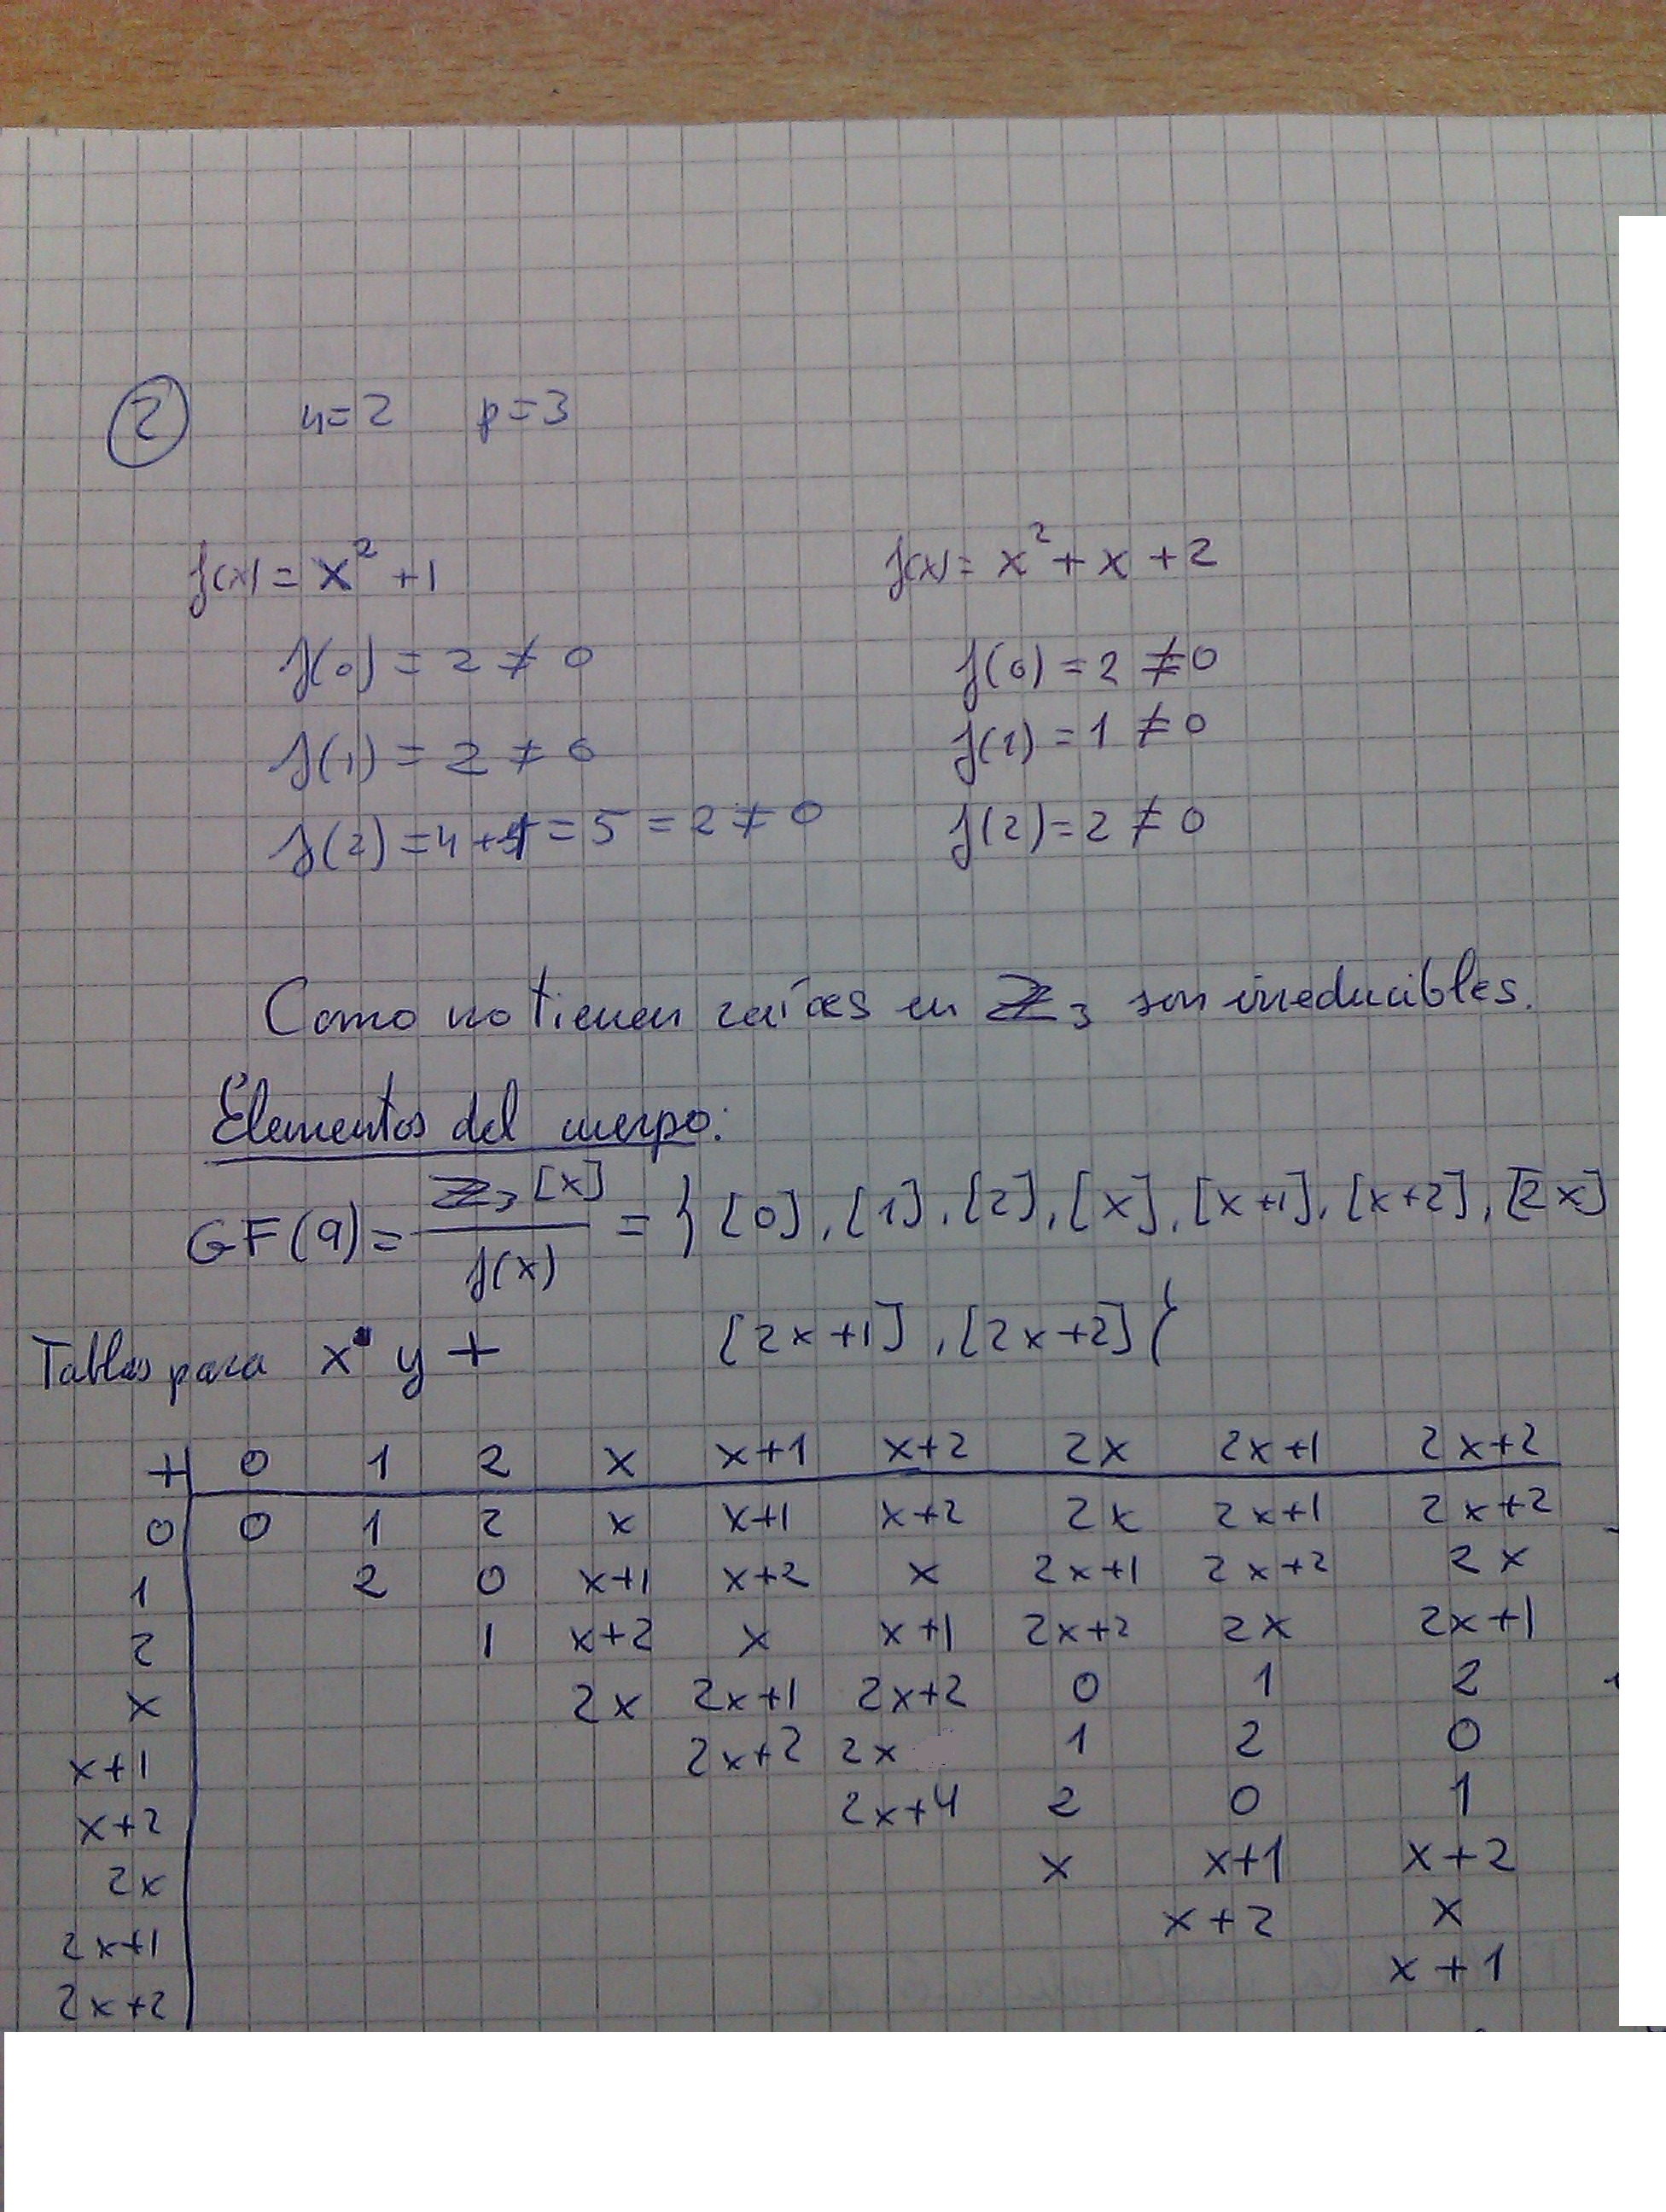 ② n=2 p=3
f(x) = x² + 1 f(x) = x² + x + 2
f(0) = 2 ≠ 0 f(0) = 2 ≠ 0
f(1) = 2 ≠ 0 f(1) = 1 ≠ 0
f(2) = 4 + 1 = 5 = 2 ≠ 0 f(2) = 2 ≠ 0
Como no tienen raíces en ℤ₃ son irreducibles.
Elementos del cuerpo:
GF(9) = ℤ₃[x] / f(x) = } [0], [1], [2], [x], [x+1], [x+2], [2x]
[2x+1], [2x+2] {
Tablas para x y +
+ 0 1 2 x x+1 x+2 2x 2x+1 2x+2
0 0 1 2 x x+1 x+2 2x 2x+1 2x+2
1 2 0 x+1 x+2 x 2x+1 2x+2 2x
2 1 x+2 x x+1 2x+2 2x 2x+1
x 2x 2x+1 2x+2 0 1 2
x+1 2x+2 2x 1 2 0
x+2 2x+4 2 0 1
2x x x+1 x+2
2x+1 x+2 x
2x+2 x+1